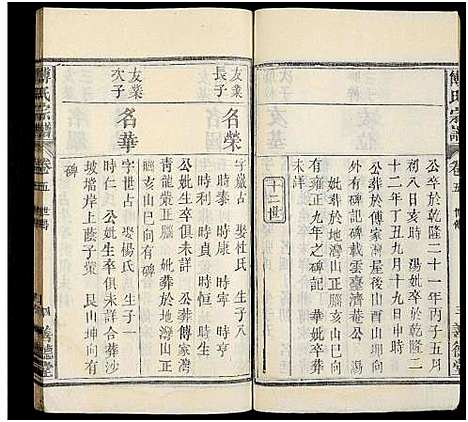 公卒於乾隆二十一年丙子五月
初八日亥時　湯妣卒於乾隆二
十二年丁丑九月十九日申時
公葬於傅家灣屋後山酉山坤向
外有碑記碑載雲臺濟菴公　湯
妣葬於地灣山正腦亥山巳向
有雍正九年之碑記　華妣卒葬
未詳
十二世
友業長子
名榮
字嚴占　娶杜氏　生子八
時泰　時康　時寧　時亨
時利　時貞　時恒　時生
公妣生卒俱未詳　公葬傅家灣
青龍嘴正腦　妣葬於地灣山正
腦亥山巳向有碑
友業次子
名華
字世占　娶楊氏　生子一
時仁　公妣生卒俱未詳合葬沙
坡壋岸上蔭子嘴　艮山坤向有
碑
傅氏宗譜
卷五
善德堂